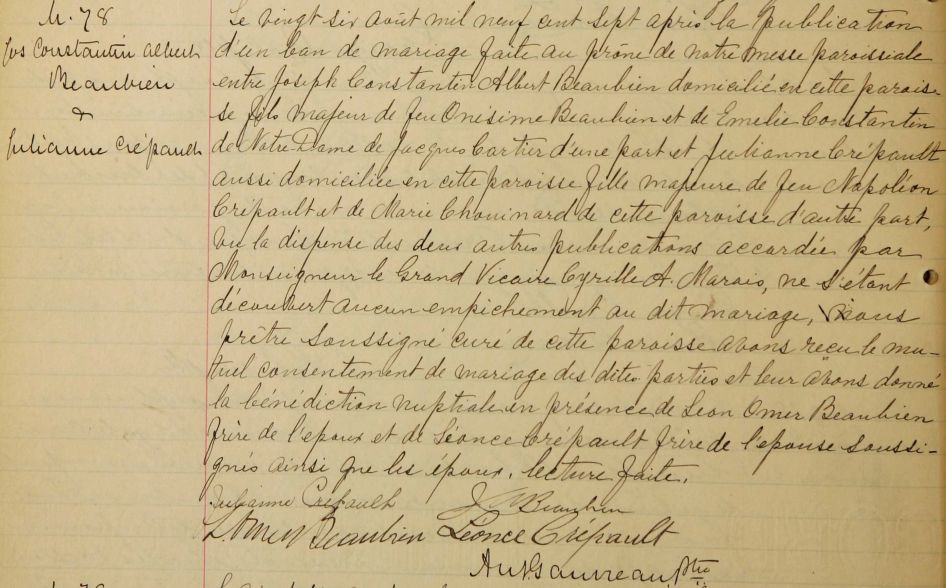 M. 78
Jos Constantin Albert
Beaubien
&
Julianne Crépault
Le vingt six août mil neuf cent sept après la publication
d'un ban de mariage faite au prône de notre messe paroissiale
entre Joseph Constantin Albert Beaubien domicilié en cette parois-
se fils majeur de feu Onisime Beaubien et de Emelie Constantin
de Notre Dame de Jacques Cartier d'une part et Julianne Crépault
aussi domiciliée en cette paroisse fille majeure de feu Napoléon
Crépault et de Marie Chouinard de cette paroisse d'autre part,
vu la dispense des deux autres publications accordée par
Monseigneur le Grand Vicaire Cyrille A. Marois, ne s'étant
découvert aucun empichement au dit mariage, nous
prêtre soussigné curé de cette paroisse avons reçu le mu-
tuel consentement de mariage des dites parties et leur avons donné
la bénédiction nuptiale en présence de Leon Omer Beaubien
frère de l'epoux et de Léonce Crépault frère de l'epouse soussi-
gnés ainsi que les époux. lecture faite.
Julianne Crépault J Beaubien
L. Omer Beaubien Léonce Crépault
Ptre